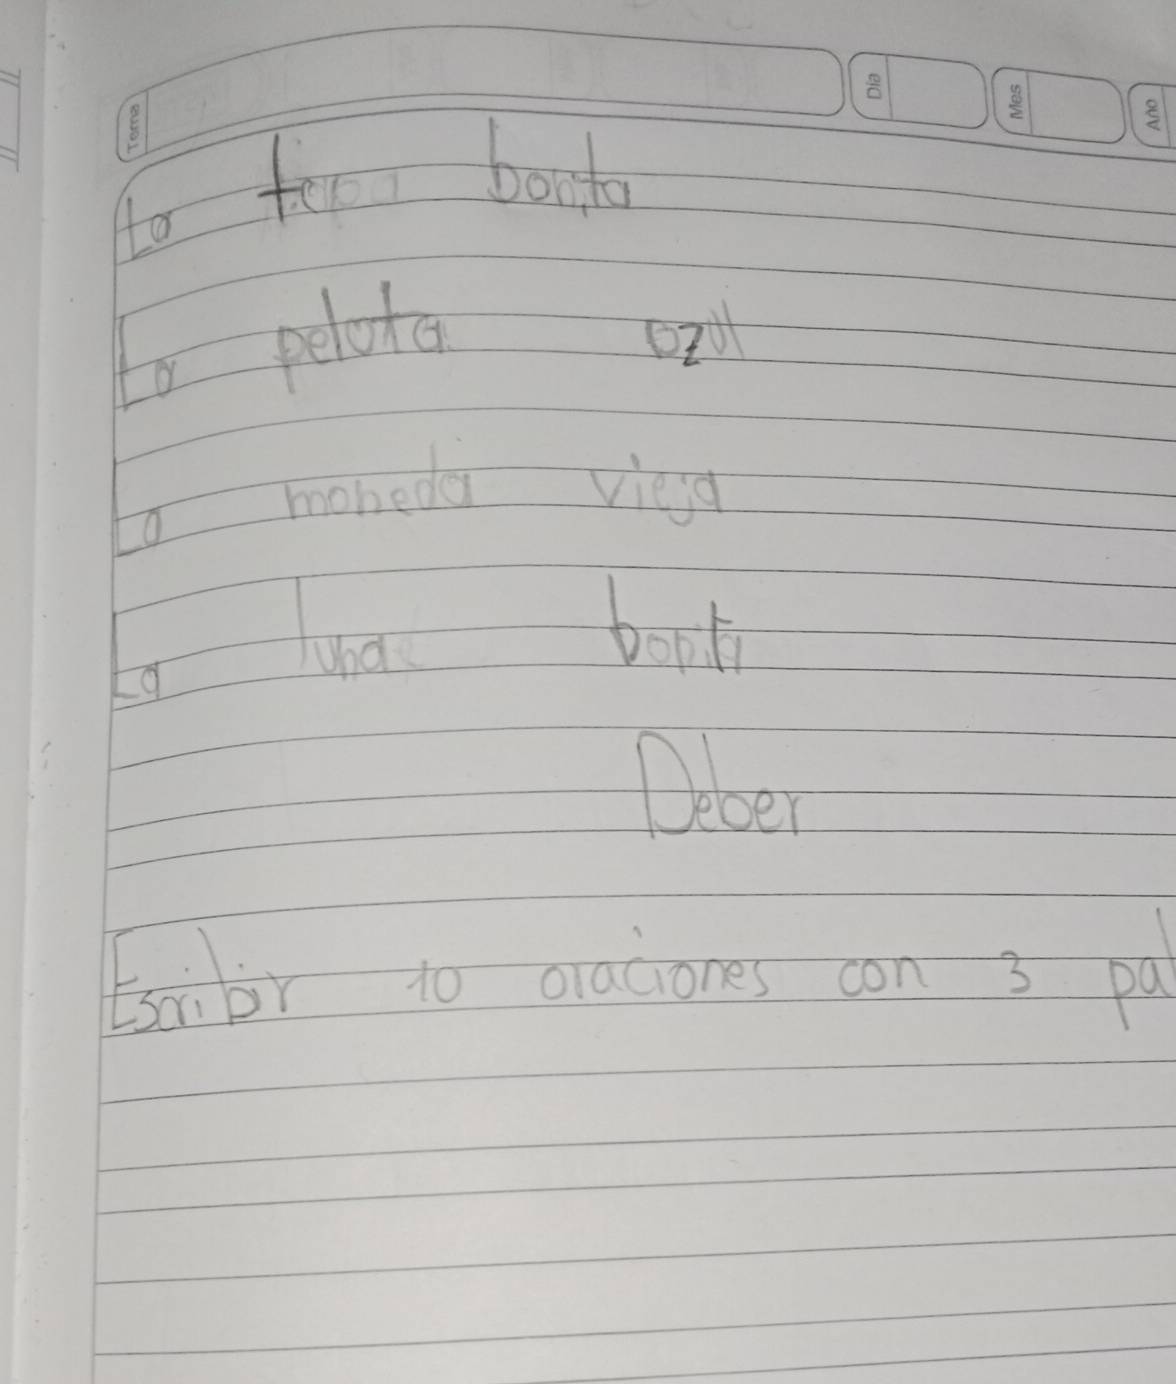 Tema Dia Mes Año
La bonita
La pelota azul
La moneda vieja
La luna bonita
Deber
Escribir 10 oraciones con 3 pal